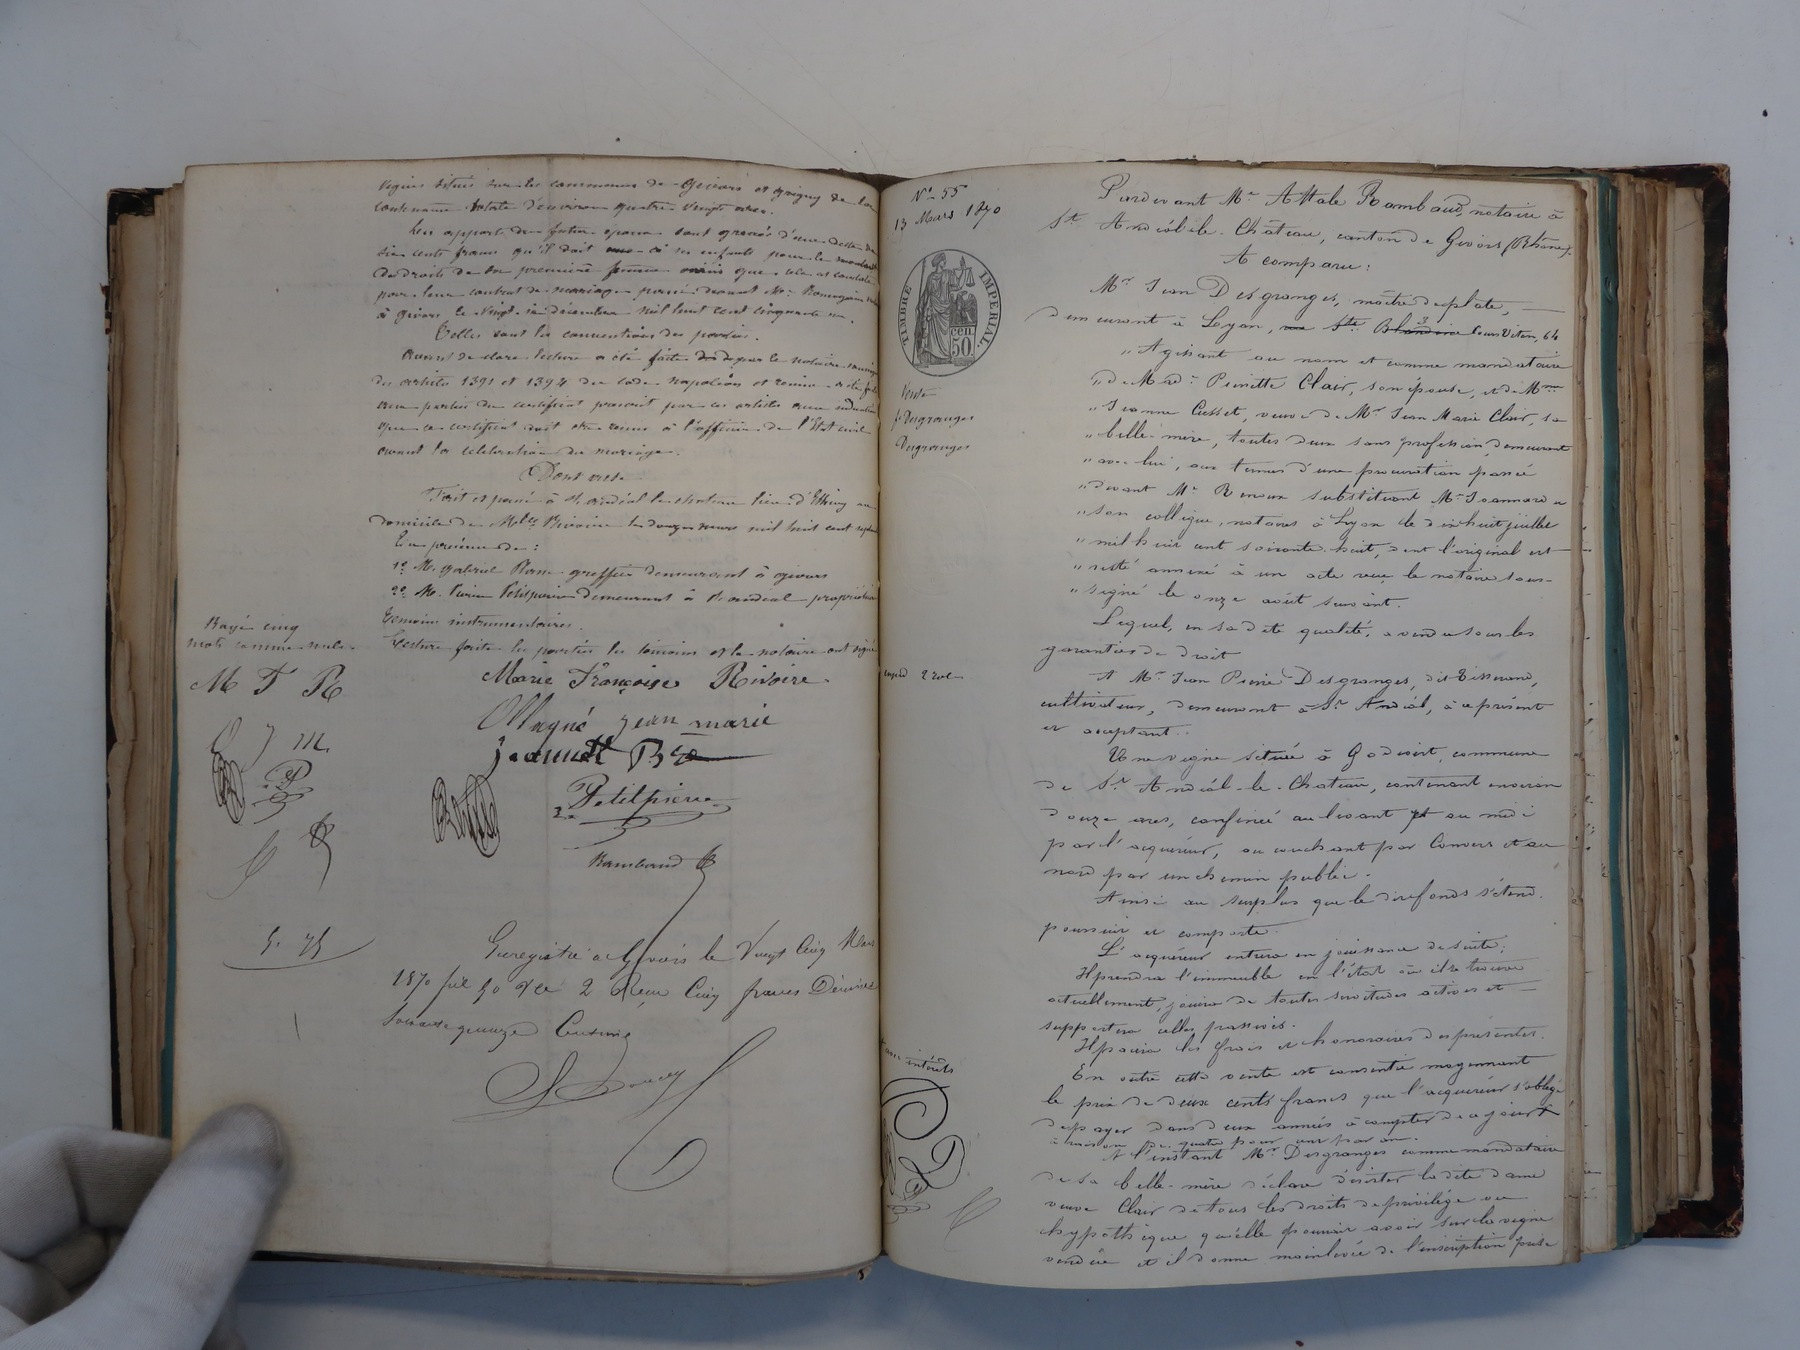 vignes situées sur les communes de Givors et Grigny de la
contenance totale d'environ quatre vingts ares.
Les apports du futur époux sont grevés d'une dette de
six cents francs qu'il doit à ses enfants pour le montant
des droits de sa première femme ainsi que cela est constaté
par leur contrat de mariage passé devant Me
à Givors le vingt six décembre mil huit cent cinquante
Telles sont les conventions des parties.
Avant de clore lecture a été faite par le notaire soussigné
des articles 1391 et 1394 du code Napoléon et remise a été faite
aux parties du certificat prescrit par ces articles avec indication
que ce certificat doit être remis à l'officier de l'État civil
avant la célébration du mariage.
Dont acte
Fait et passé à St Andéol le château lieu d' au
domicile de Melle Rivoire le douze mars mil huit cent
En présence de :
1o M. Gabriel greffier demeurant à Givors
2o M. Petitpierre demeurant à St Andéol propriétaire
témoins instrumentaires.
Lecture faite les parties les témoins et le notaire ont signé
Rayé cinq
mots comme nuls.
M F R
O J M.
P
Marie Françoise Rivoire
Ollagné Jean marie
Petitpierre
Rambaud
5. 75
Enregistré à Givors le Vingt Cinq Mars
1870 fol 50 Vo Ce 2 Reçu Cinq francs Décimes
Soixante quinze Centimes
No 55
13 Mars 1870
TIMBRE IMPERIAL
50 cen.
Vente
p Desgranges
à Desgranges
Pardevant Me Attale Rambaud, notaire à
St Andéol-le-Château, canton de Givors (Rhône).
A comparu :
Mr Jean Desgranges, maître
demeurant à Lyon, rue Ste Blandine 3 Cours Vitton, 64
„ Agissant au nom et comme mandataire
„ de Made Pierrette Clair, son épouse, et de Mme
„ Jeanne Cusset, veuve de Mr Jean Marie Clair, sa
„ belle-mère, toutes deux sans profession, demeurant
„ avec lui, aux termes d'une procuration passée
„ devant Me substituant Me
„ son collègue, notaires à Lyon le dix huit juillet
„ mil huit cent soixante-huit, dont l'original est
„ resté annexé à un acte reçu le notaire sous-
„ signé le onze août suivant.
Lequel, en sa dite qualité, a vendu sous les
garanties de droit
A Mr Jean Pierre Desgranges, dit Tisserand,
cultivateur, demeurant à St Andéol, à ce présent
et acceptant.
Une vigne située à Godivert, commune
de St Andéol-le-Château, contenant environ
douze ares, confinée au levant et au midi
par l'acquéreur, au couchant par et au
nord par un chemin public.
Ainsi au surplus que le dit fonds s'étend
poursuit et comporte.
L'acquéreur entrera en jouissance de suite ;
Il prendra l'immeuble en l'état où il se trouve
actuellement, jouira de toutes servitudes actives et
supportera celles passives.
Il paiera les frais et honoraires des présentes.
En outre cette vente est consentie moyennant
le prix de deux cents francs que l'acquéreur s'oblige
de payer dans deux années à compter de ce jour
avec intérêts
à raison de quatre pour cent par an.
A l'instant Mr Desgranges comme mandataire
de sa belle-mère déclare désister la dite dame
veuve Clair de tous les droits de privilège ou
hypothèque qu'elle pouvait avoir sur la vigne
vendue et il donne mainlevée de l'inscription prise